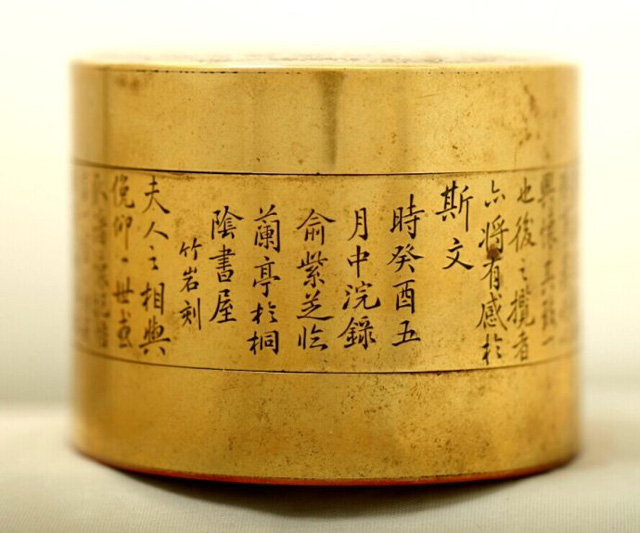 興懷其致一
也後之攬者
亦将有感於
斯文
時癸酉五
月中浣錄
俞紫芝臨
蘭亭於桐
陰書屋
竹岩刻
夫人之相與
俛仰一世或